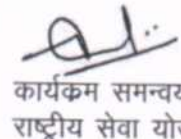 कार्यक्रम समन्वय
राष्ट्रीय सेवा यो